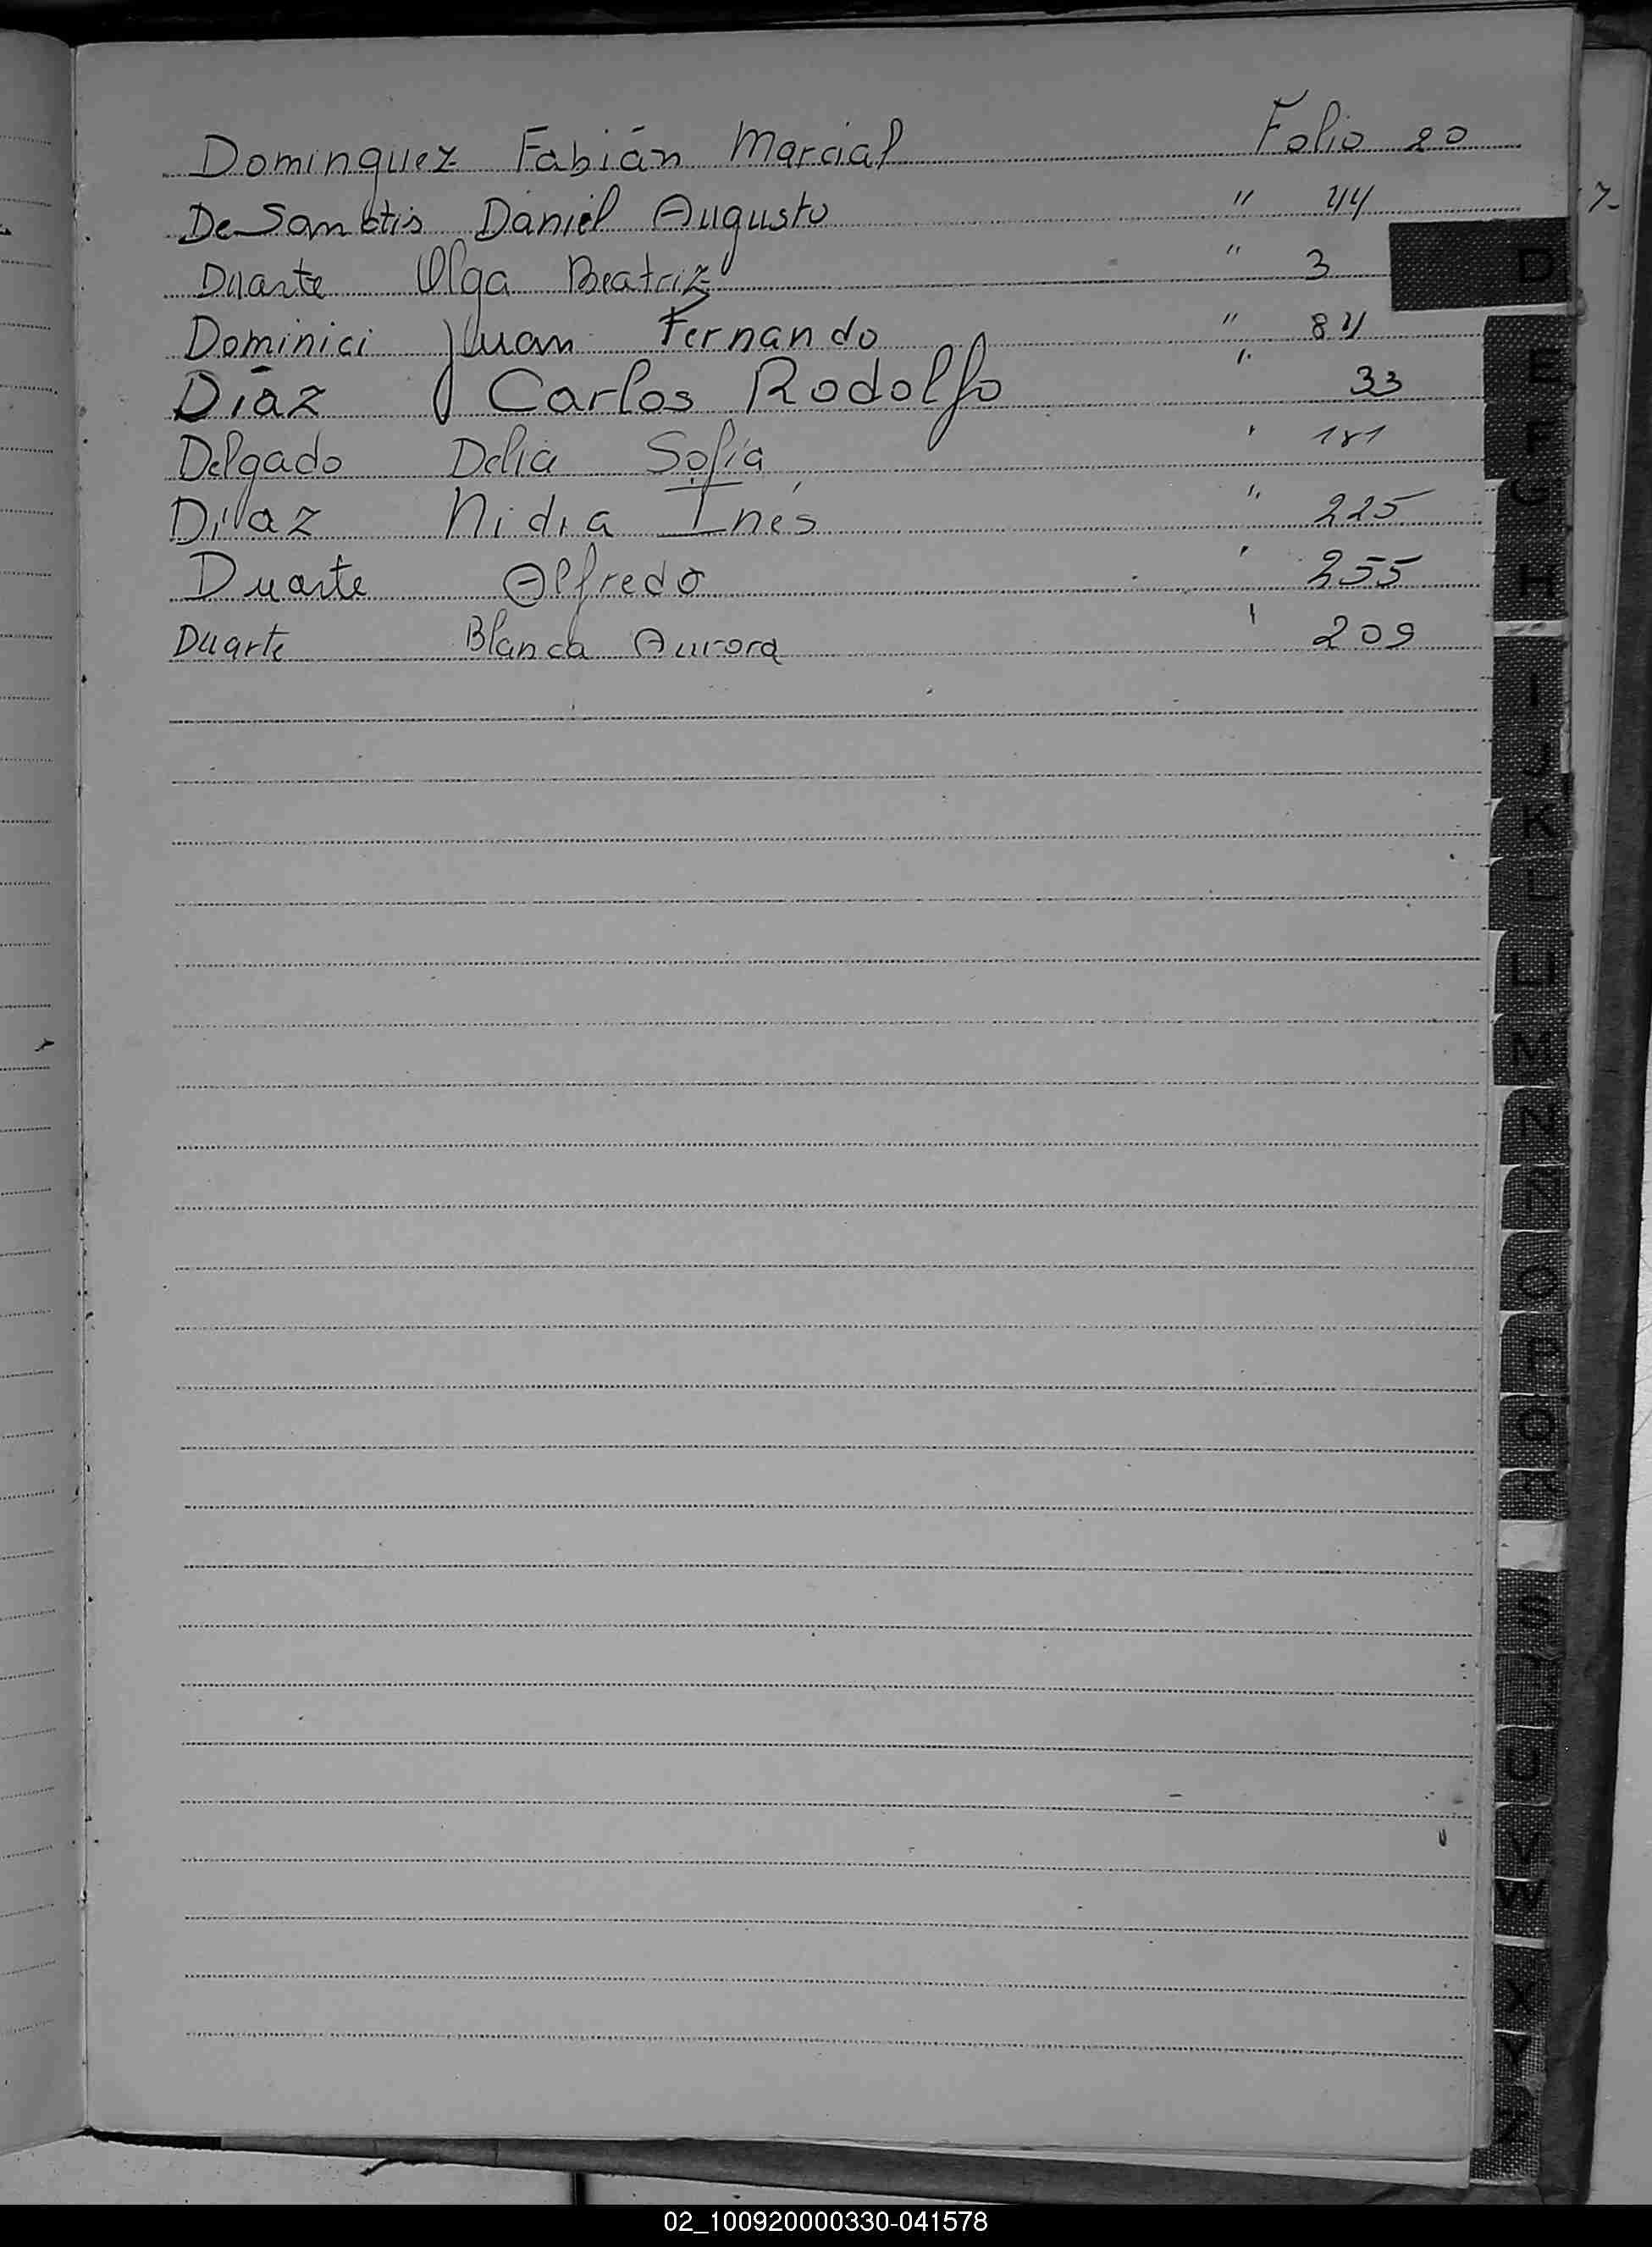 Dominguez Fabián Marcial Folio 20
De Sanctis Daniel Augusto " 44
Duarte Olga Beatriz " 3
Dominici Juan Fernando " 84
Díaz Carlos Rodolfo " 33
Delgado Delia Sofía " 181
Díaz Nidia Inés " 225
Duarte Alfredo " 255
Duarte Blanca Aurora " 209
D
E
F
G
H
I
J
K
L
LL
M
N
Ñ
O
P
Q
R
S
U
V
W
X
Y
Z
02_100920000330-041578